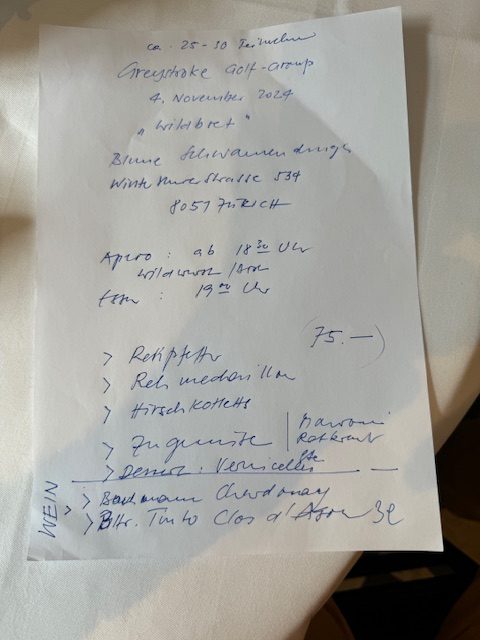 ca. 25-30 Teilnehmer
Greystoke Golf-Group
4. November 2024
"Wildbret"
Blume Schwamendingen
Winterthurerstrasse 534
8051 ZÜRICH
Apero : ab 18 30 Uhr
Wildwurst /
Essen : 19 00 Uhr
(75.-)
> Rehpfeffer
> Reh medaillon
> Hirschkoteletts
> Zugemüse | Marroni
Rotkraut
etc
> Dessert : Vermicelles
WEIN
> Bachmann Chardonnay
> Tinto Clos d'